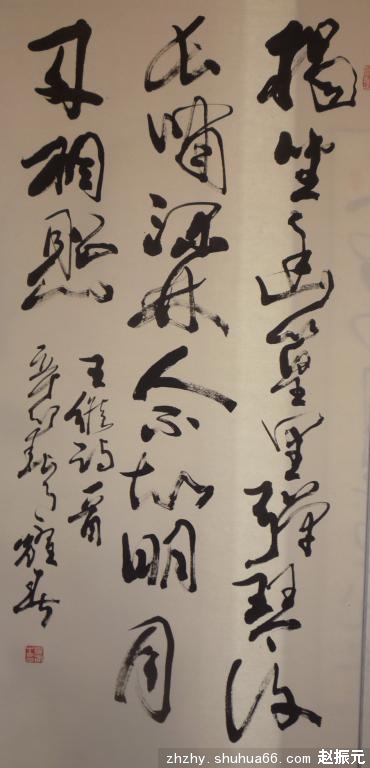 独坐幽篁里弹琴复
长啸深林人不知明月
来相照
王维诗一首
辛卯
zhzhy.shuhua66.com 赵振元